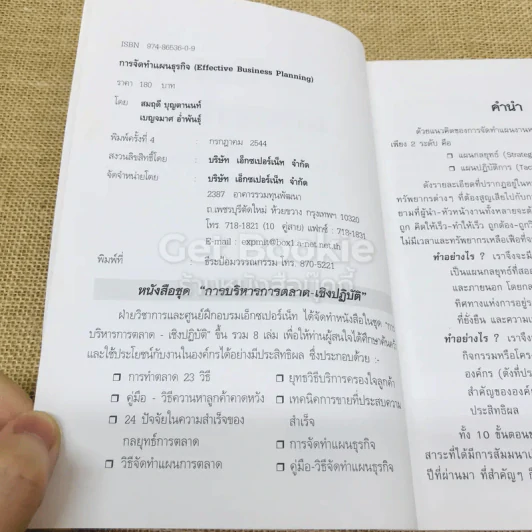 ISBN 974-86536-0-9
การจัดทำแผนธุรกิจ (Effective Business Planning)
ราคา 180 บาท
โดย สมฤดี บุญดานนท์
เบญจมาศ อ่ำพันธุ์
พิมพ์ครั้งที่ 4 : กรกฎาคม 2544
สงวนลิขสิทธิ์โดย : บริษัท เอ็กซเปอร์เน็ท จำกัด
จัดจำหน่ายโดย : บริษัท เอ็กซเปอร์เน็ท จำกัด
2387 อาคารรวมทุนพัฒนา
ถ.เพชรบุรีตัดใหม่ ห้วยขวาง กรุงเทพฯ 10320
โทร 718-1821 (10 คู่สาย) แฟกซ์ : 718-1831
E-mail : expmit@box1.a-net.net.th
พิมพ์ที่ : ธีระป้อมวรรณกรรม โทร. 870-5221
หนังสือชุด "การบริหารการตลาด-เชิงปฏิบัติ"
ฝ่ายวิชาการและศูนย์ฝึกอบรมเอ็กซเปอร์เน็ท ได้จัดทำหนังสือในชุด "การ
บริหารการตลาด - เชิงปฏิบัติ" ขึ้น รวม 8 เล่ม เพื่อให้ท่านผู้สนใจได้ศึกษาค้นคว้า
และใช้ประโยชน์กับงานในองค์กรได้อย่างมีประสิทธิผล ซึ่งประกอบด้วย :-
❒ การทำตลาด 23 วิธี
❒ ยุทธวิธีบริการครองใจลูกค้า
❒ คู่มือ - วิธีความหาลูกค้าคาดหวัง
❒ เทคนิคการขายที่ประสบความ
สำเร็จ
❒ 24 ปัจจัยในความสำเร็จของ
กลยุทธ์การตลาด
❒ การจัดทำแผนธุรกิจ
❒ วิธีจัดทำแผนการตลาด
❒ คู่มือ-วิธีจัดทำแผนธุรกิจ
คำนำ
ด้วยแนวคิดของการจัดทำแผนงาน
เพียง 2 ระดับ คือ
❒ แผนกลยุทธ์ (Strateg
❒ แผนปฏิบัติการ (Tac
ดังรายละเอียดที่ปรากฏอยู่ใน
ทรัพยากรต่างๆ ที่ต้องสูญเสียไปกับก
ยามที่ผู้นำ-หัวหน้างานทั้งหลายจะต้
ถูก คิดให้เร็ว-ทำให้เร็ว ถูกต้อง-ถูกใ
ไม่มีเวลาและทรัพยากรเหลือเฟือที่จะ
ทำอย่างไร ? เราจึงจะมี
เป็นแผนกลยุทธ์ที่สอ
และภายนอก โดยกล
ทิศทางแห่งการอยู่ร
ที่ยั่งยืน และความเ
ทำอย่างไร ? เราจึง
กิจกรรมหรือโคร
องค์กร (ดังที่ปร
สำคัญขององค์
ประสิทธิผล
ทั้ง 10 ขั้นตอน
สาระที่ได้มีการสัมมนาเ
ปีที่ผ่านมา ที่สำคัญๆ ก็